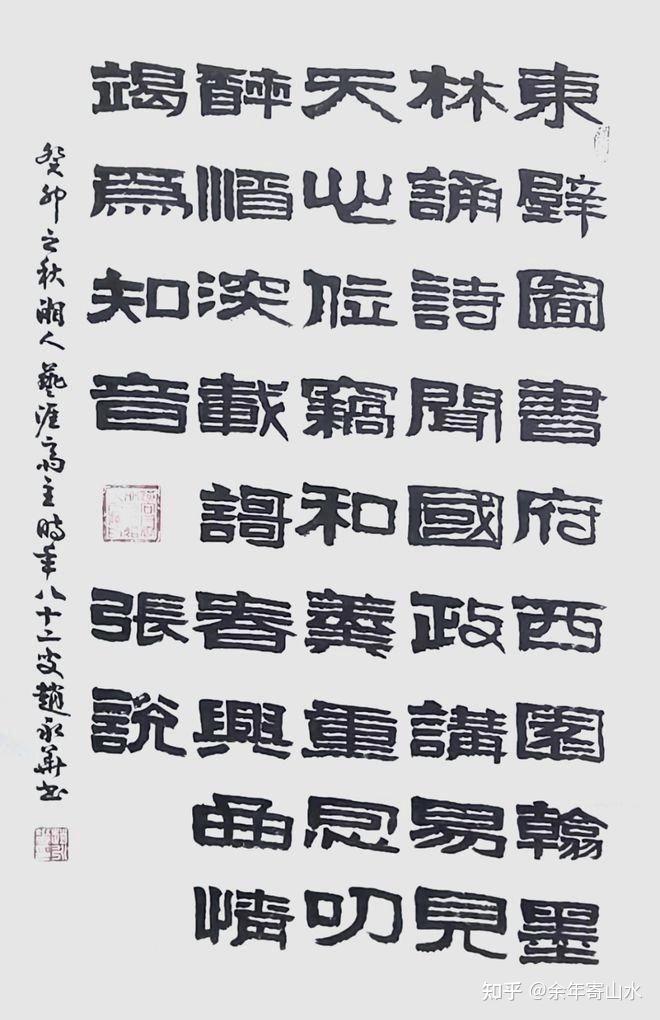 東壁圖書府西園翰墨
林誦詩聞國政講易見
天心位竊和羹重恩叨
醉酒深載謌春興曲情
竭爲知音 張説
癸卯之秋湘人藝涯齋主時年八十二叟趙永華書
知乎 @余年寄山水